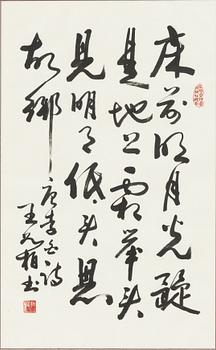 床前明月光疑
是地上霜举头
見明月低头思
故鄉
唐李白诗
王
书